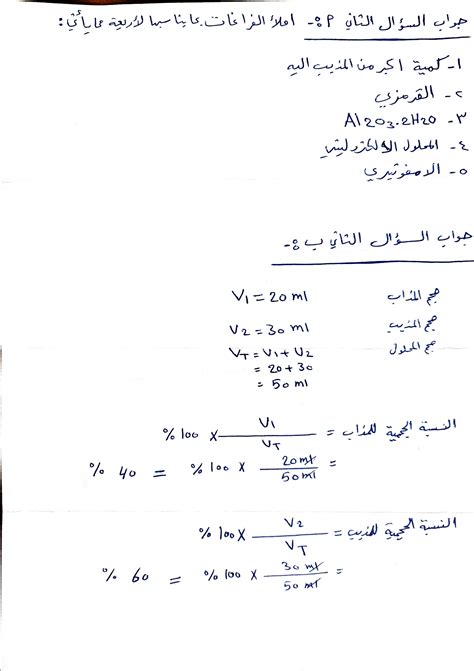 جواب السؤال الثاني P :- املأ الفراغات بما يناسبها لأربعة مما يأتي :
١- كمية اكبر من المذيب اليه
٢- القرمزي
٣- Al2O3.2H2O
٤- المحلول الالكتروليتي
٥- الامفوتيري
جواب السؤال الثاني ب :-
حجم المذاب V1 = 20 ml
حجم المذيب V2 = 30 ml
حجم المحلول VT = V1 + V2
= 20 + 30
= 50 ml
النسبة الحجمية للمذاب = V1 / VT × 100 %
= 20 ml / 50 ml × 100 % = 40 %
النسبة الحجمية للمذيب = V2 / VT × 100 %
= 30 ml / 50 ml × 100 % = 60 %